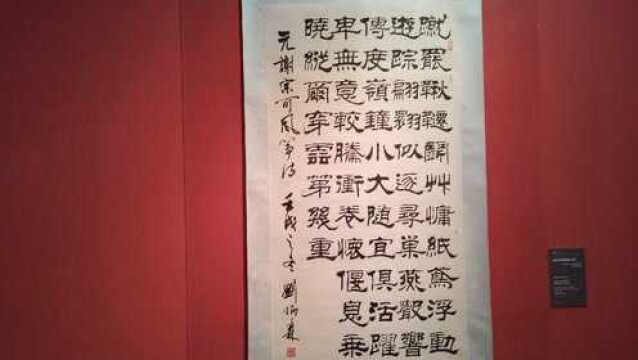 蹴罷鞦韆鬭艸慵紙鳶浮動
遊踪翩翻似逐尋巢燕㪚響
傳度嶺鐘小大随宜俱活躍
卑無意較騰衝卷懷偃息乗
曉縱爾穿雲第幾重
元謝宗可風箏诗 壬戌之冬 劉炳森